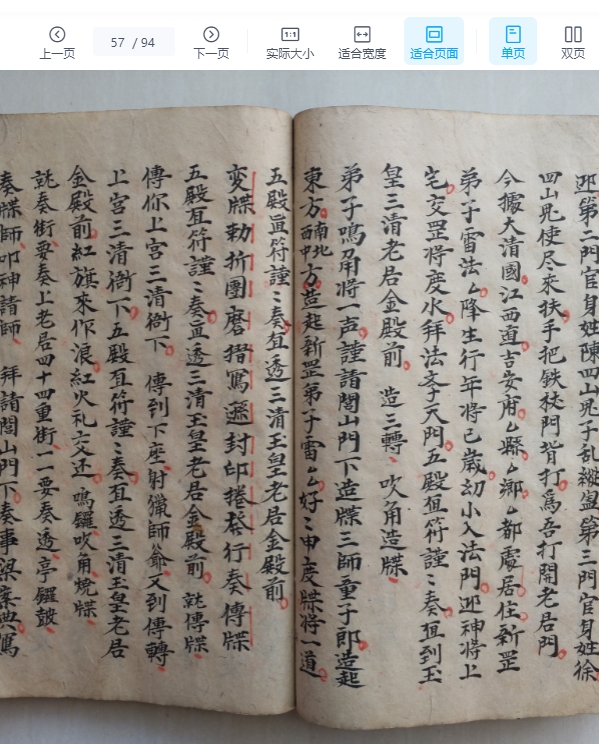 上一页
57 / 94
下一页
实际大小
适合宽度
适合页面
单页
双页
迎第二門官身姓陳四山鬼子乱縱盥第三門官身姓徐
四山鬼使尽来扶手把鉄杖門背打為吾打開老居門
今據大清國江西直吉安府厶縣厶鄉厶都處居住新罡
弟子雷法厶降生行年將已歲幼小入法門迎神將上
宅交罡將度水拜法李天門五殿亙符謹〻奏亙到玉
皇三清老居金殿前 造三轉 吹角造牒
弟子鳴角將一声謹請閭山門下造牒三師童子郎造起
東方南北西中方造起新罡弟子雷厶厶好〻申度牒將一道
五殿亙符謹〻奏亙透三清玉皇老居金殿前
变牒勅折團磨摺寫遞封印捲 行奏傳牒
五殿亙符謹〻奏亙透三清玉皇老居金殿前 就傳牒
傳你上宮三清衙下 傳到下座射獵師爺又到傳轉
上宮三清衙下五殿亙符謹〻奏亙透三清玉皇老居
金殿前紅旗来作浪紅火礼文还 鳴鑼吹角燒牒
説奏衙要奏上老居四十四重街一一要奏透亭鑼鼓
奏牒師郎神諸師 拜請閭山門下奏事梁 典寫